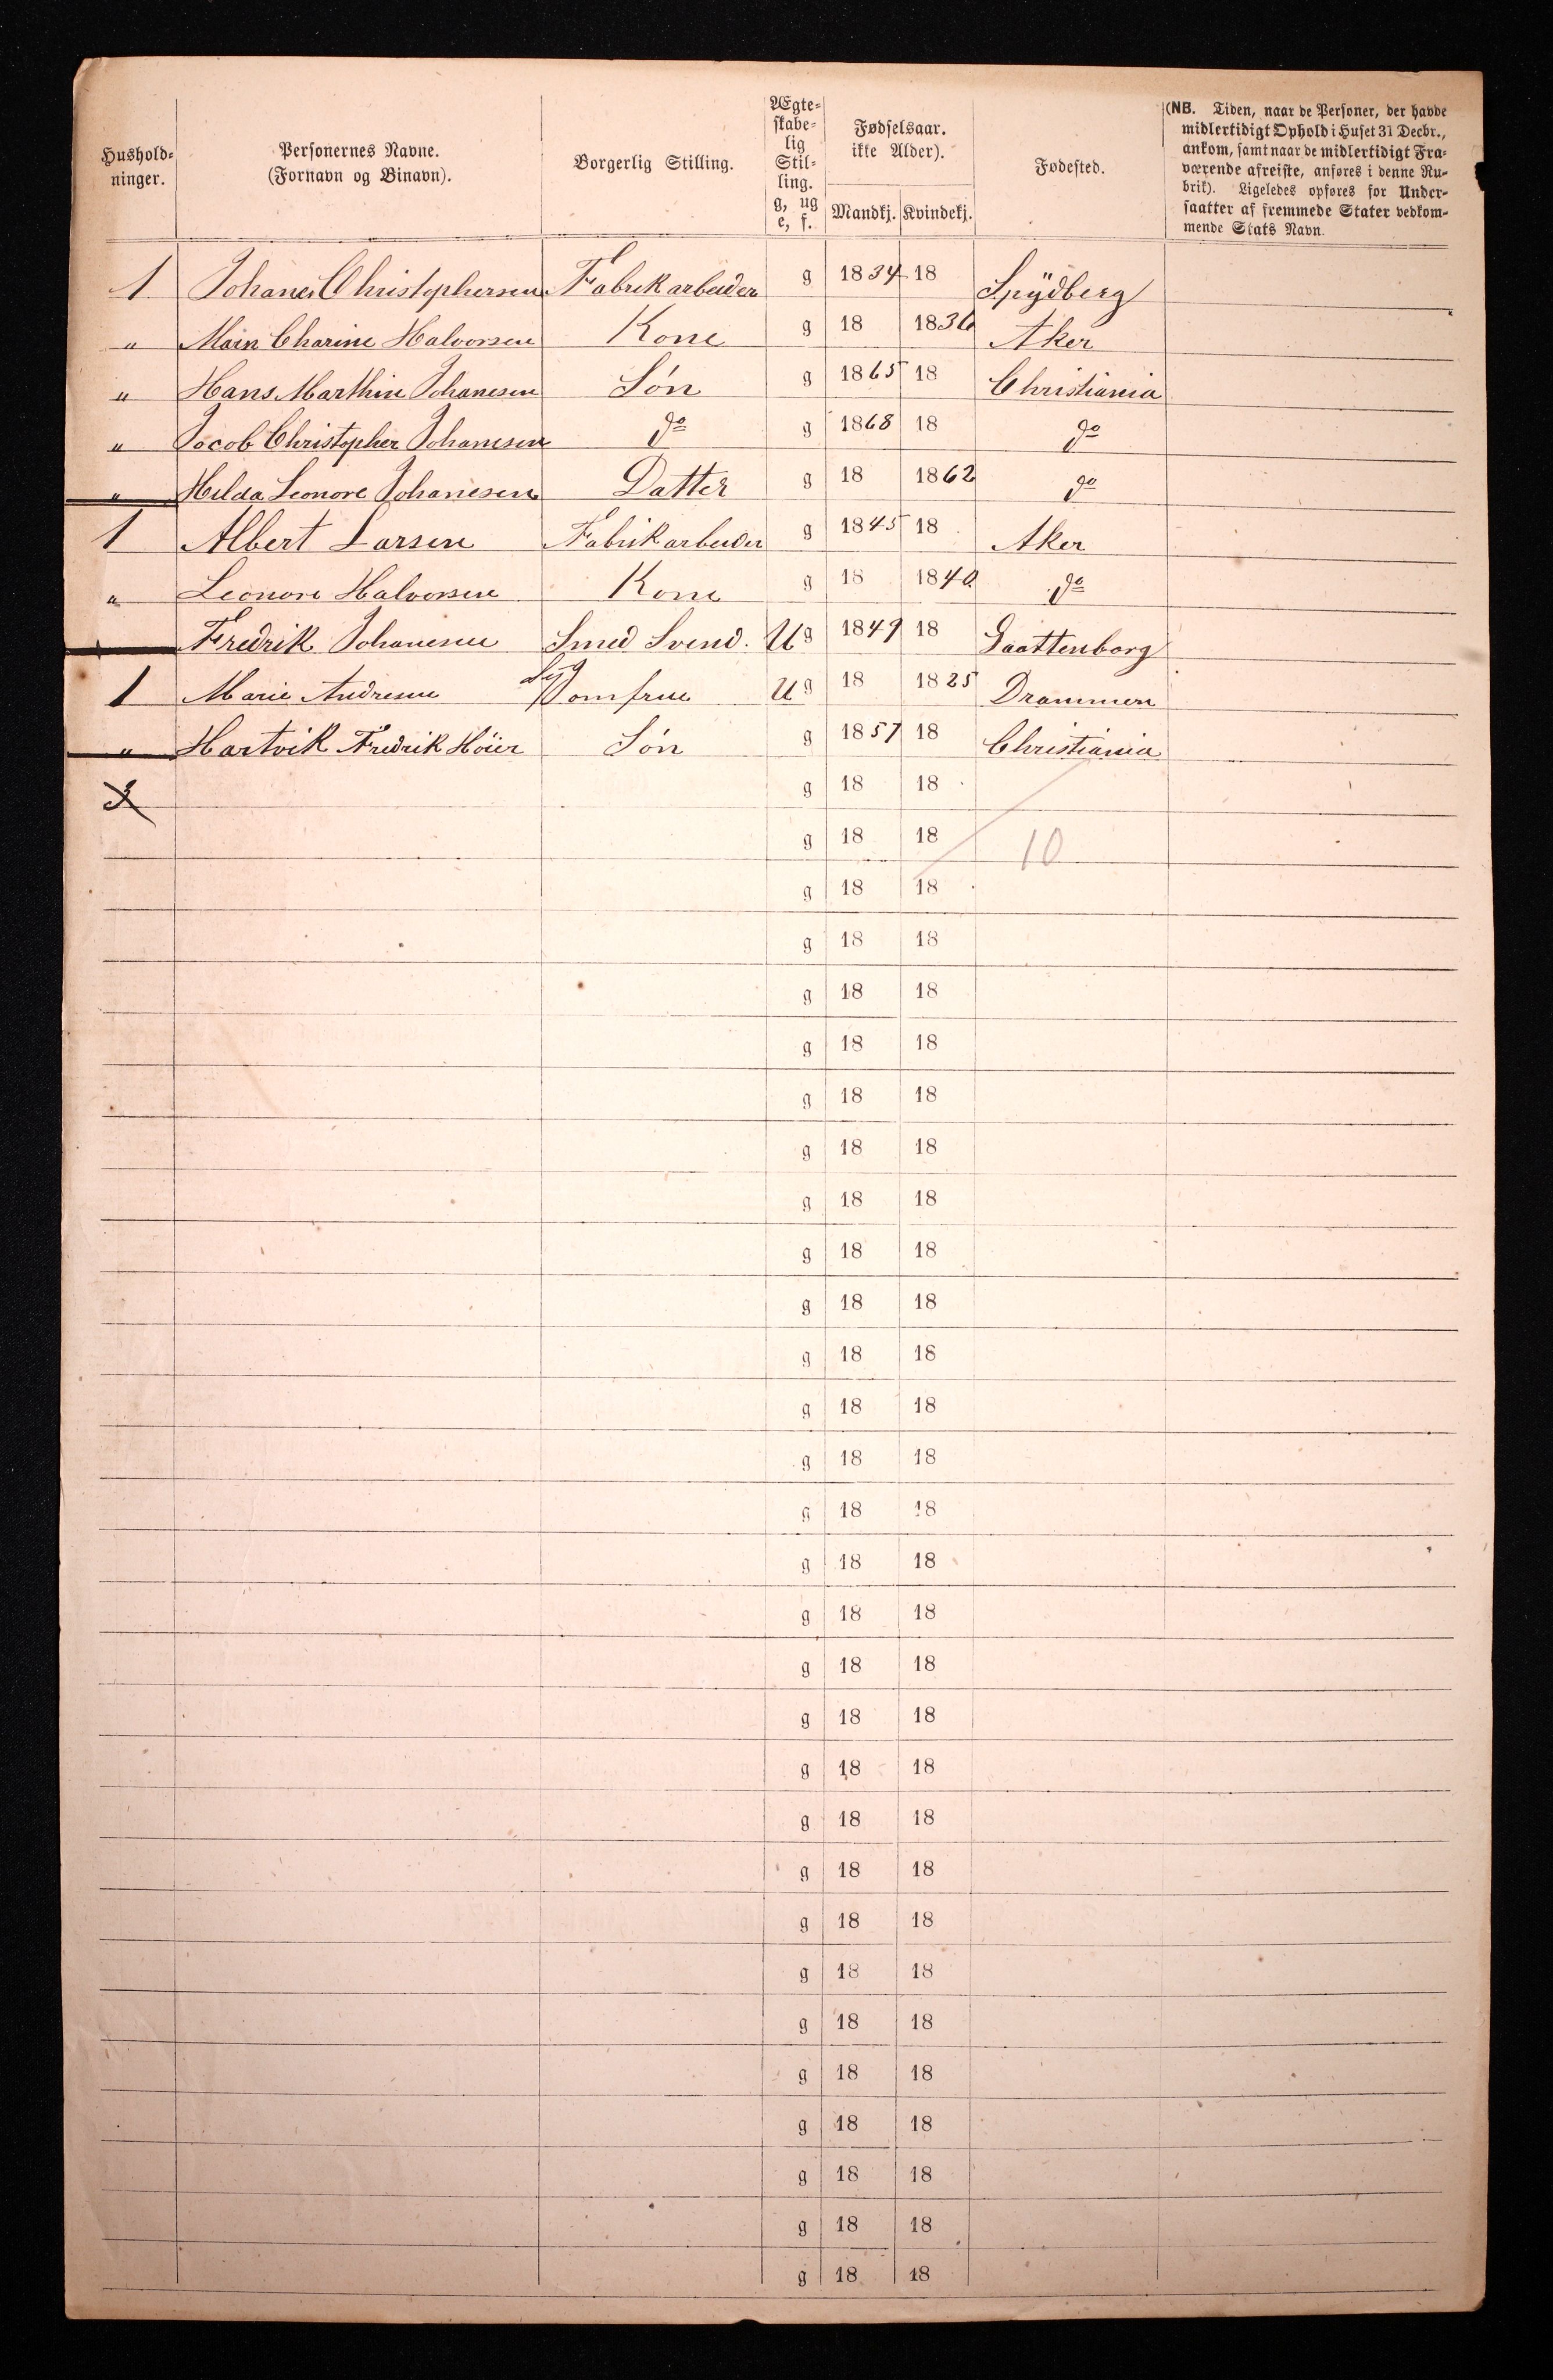 Hushold-
ninger.
Personernes Navne.
(Fornavn og Binavn).
Borgerlig Stilling.
Ægte-
skabe-
lig
Stil-
ling.
g, ug
e, f.
Fødselsaar.
ikke Alder).
Mandkj. Kvindekj.
Fødested.
(NB. Tiden, naar de Personer, der havde
midlertidigt Ophold i Huset 31 Decbr.,
ankom, samt naar de midlertidigt Fra-
værende afreiste, anføres i denne Ru-
brik). Ligeledes opføres for Under-
saatter af fremmede Stater vedkom-
mende Stats Navn.
1 Johanes Christophersen Fabrikarbeider g 1834 18 Spÿdberg
" Main Charine Halvorsen Kone g 18 1836 Aker
" Hans Marthin Johanesen Són g 1865 18 Christiania
" Jocob Christopher Johanesen do g 1868 18 do
" Hilda Leonore Johanesen Datter g 18 1862 do
1 Albert Larsen Fabrikarbeider g 1845 18 Aker
" Leonore Halvorsen Kone g 18 1840 do
Fredrik Johanesen Smed Svend. Ug 1849 18 Gaattenborg
1 Marie Andresen Syjomfrue Ug 18 1825 Drammen
" Hartvik Fredrik Höier Són g 1857 18 Christiania
3 g 18 18
g 18 18 10
g 18 18
g 18 18
g 18 18
g 18 18
g 18 18
g 18 18
g 18 18
g 18 18
g 18 18
g 18 18
g 18 18
g 18 18
g 18 18
g 18 18
g 18 18
g 18 18
g 18 18
g 18 18
g 18 18
g 18 18
g 18 18
g 18 18
g 18 18
g 18 18
g 18 18
g 18 18
g 18 18
g 18 18